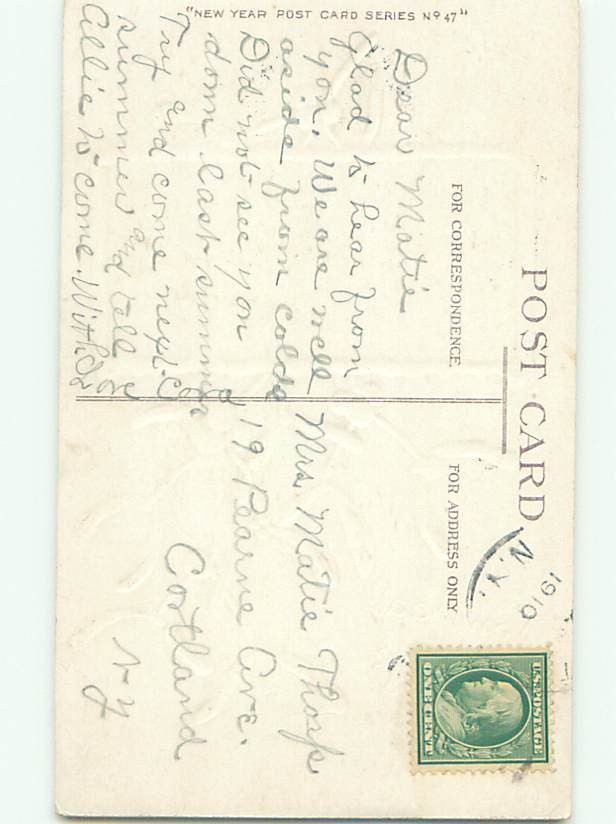 "NEW YEAR POST CARD SERIES No 47"
POST CARD
FOR CORRESPONDENCE
FOR ADDRESS ONLY
Dear Matie
Glad to hear from
you. We are well
aside from colds
Did not see you
down last summer
Try and come next
summer and tell
Allie to come. With
Mrs Matie Thorp
19 Pearne Ave.
Cortland
N Y
N.Y.
1910
U.S. POSTAGE
ONE CENT